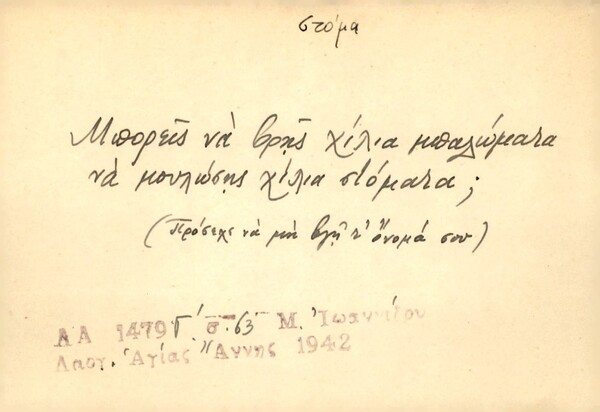 στόμα
Μπορεῖς νὰ βρῇς χίλια μπαλώματα
νὰ μουλώσῃς χίλια στόματα;
(Πρόσεχε νὰ μὴ βγῇ τ' ὄνομά σου)
ΛΑ 1479 Γ', σ. 63 Μ. Ἰωαννίδου
Λαογ. Ἁγίας Ἄννης 1942